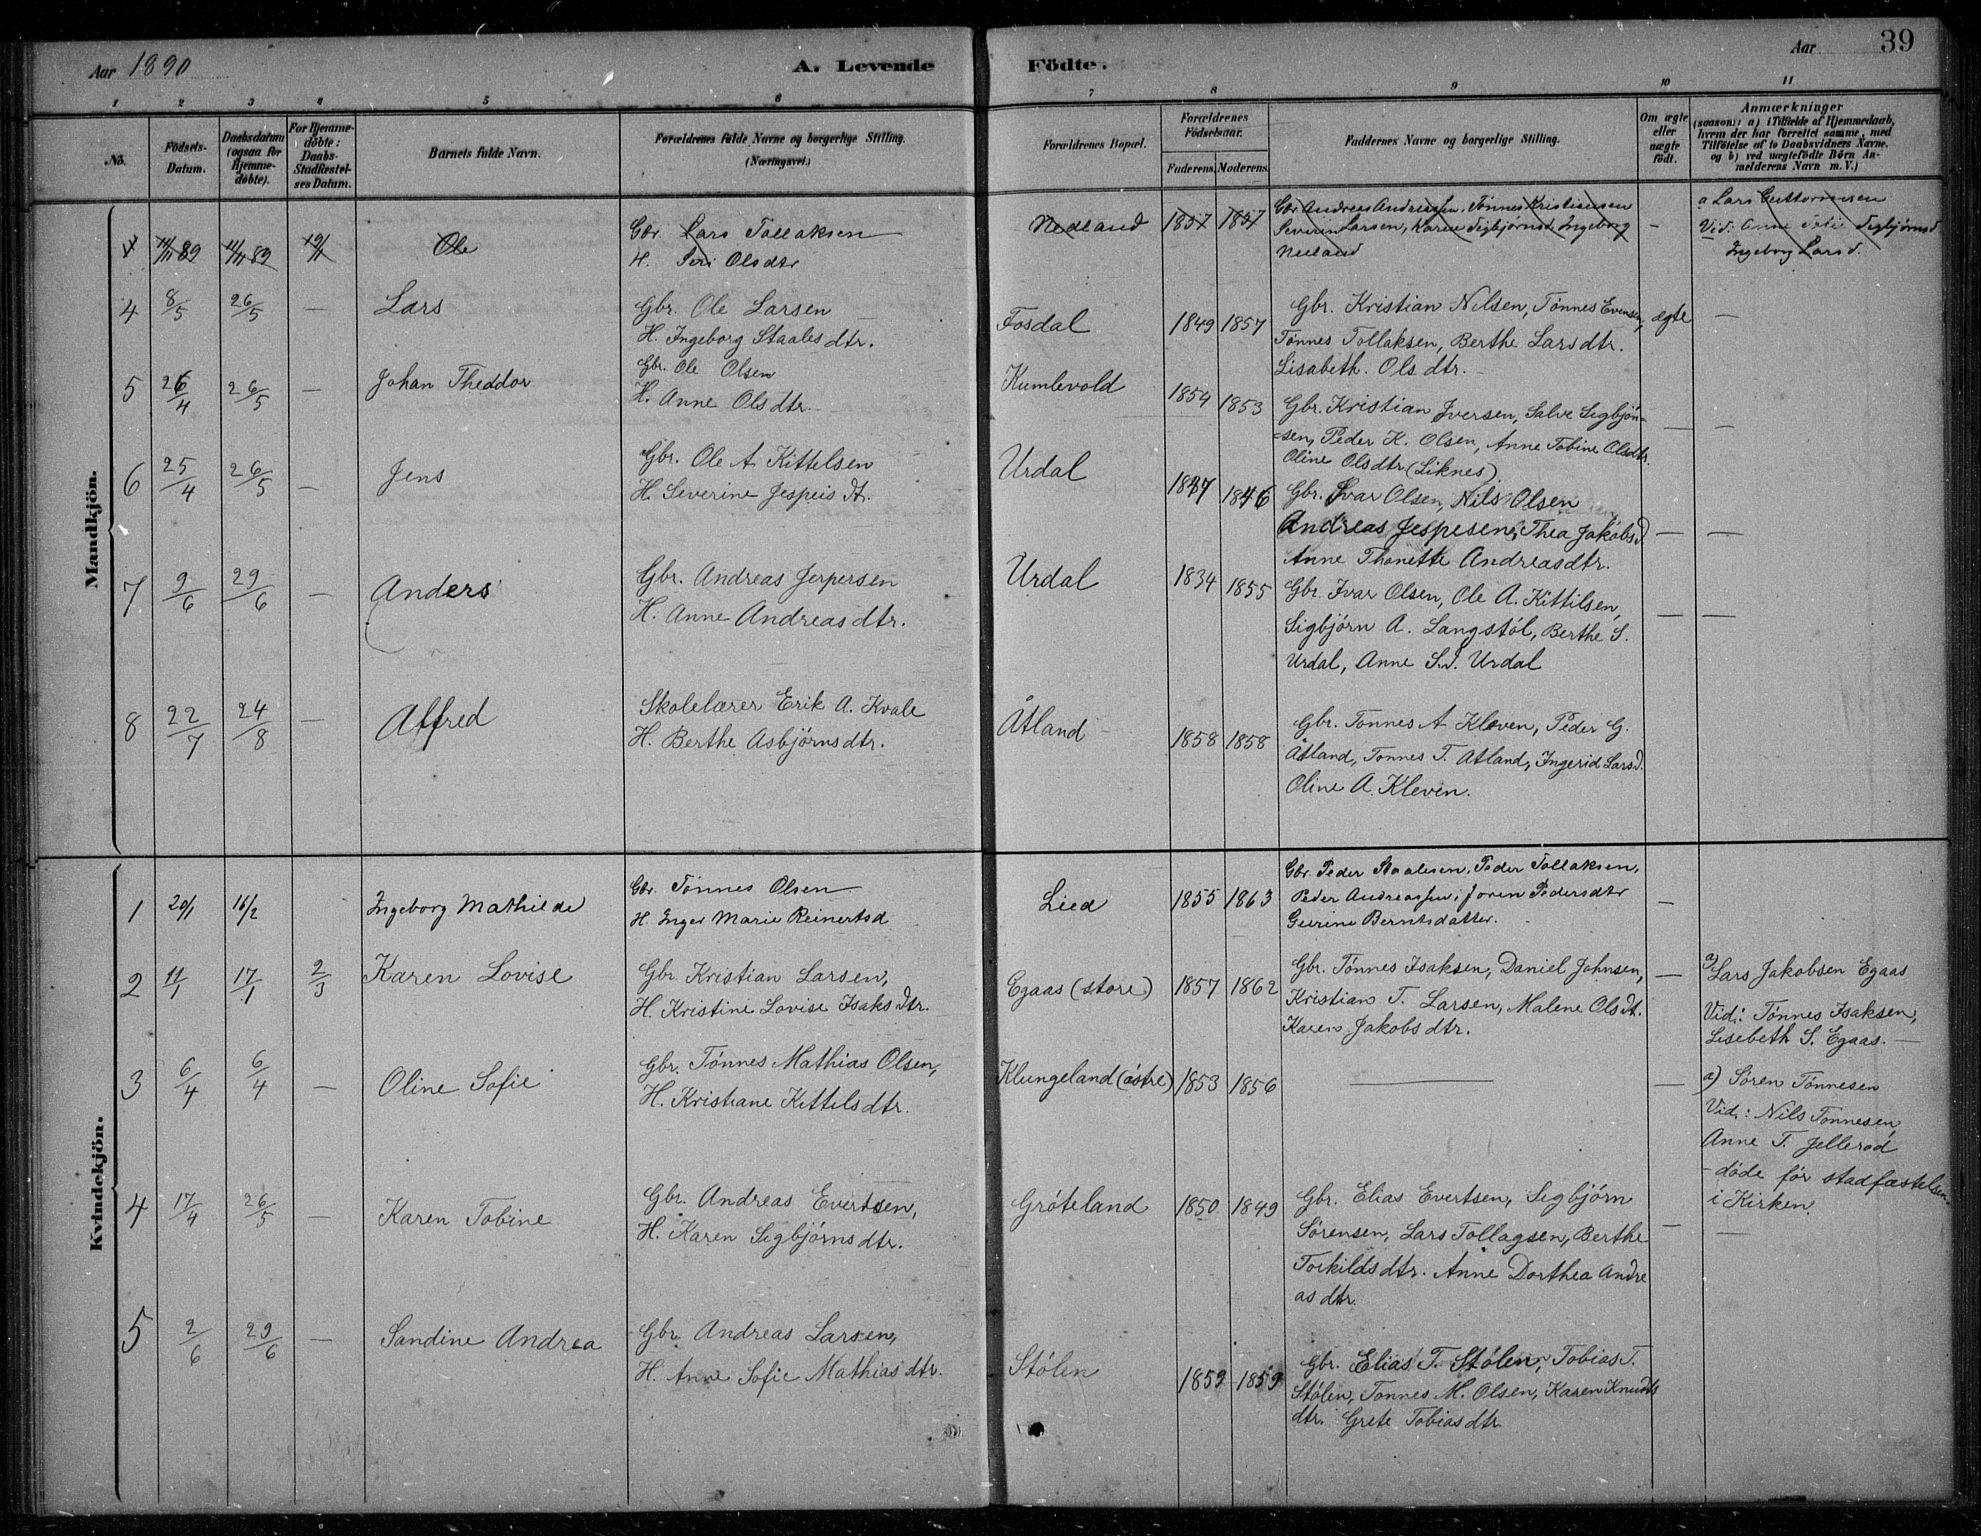 Aar 1890
A. Levende
Födte.
Aar
39
1 2 3 4 5 6 7 8 9 10 11
No.
Födsels-
Datum.
Daabsdatum
(ogsaa for
Hjemme-
döbte).
For Hjemme-
döbte:
Daabs-
Stadfæstel-
ses Datum.
Barnets fulde Navn.
Forældrenes fulde Navne og borgerlige Stilling.
(Næringsvei.)
Forældrenes Bopæl.
Forældrenes
Födselsaar.
Faderens. Moderens.
Faddernes Navne og borgerlige Stilling.
Om ægte
eller
uægte
födt.
Anmærkninger
(saasom: a) i Tilfælde af Hjemmedaab,
hvem der har forrettet samme, med
Tilföielse af to Daabsvidners Navne,
og b) ved uægtefödte Börn An-
melderens Navn m. V.)
Mandkjön.
11/11 89 11/11 89 19/1 Ole
Gbr. Lars Tollaksen
H. Siri Olsdtr
Nedland 1857 1857
Gbr Andreas Andreassen, Tønnes Kristiansen
Severin Larsen, Karen Sigbjørnsd, Ingeborg
Nedland
a Lars Guttormsen
Vid: Anne Sofie Sigbjørnsd
Ingeborg Larsd.
4 8/5 26/5 — Lars
Gbr. Ole Larsen
H. Ingeborg Staalesdtr.
Fosdal 1849 1857
Gbr. Kristian Nilsen, Tønnes Evensen,
Tønnes Tollaksen, Berthe Larsdtr.
Lisabeth. Olsdtr. —
ægte —
5 26/4 26/5 — Johan Theddor
Gbr. Ole Olsen
H. Anne Olsdtr.
Kumlevold 1854 1853
Gbr. Kristian Iversen, Salve Sigbjön-
=sen, Peder K. Olsen, Anne Tobine Olsdtr.
Oline Olsdtr (Liknes)
— —
6 25/4 26/5 — Jens
Gbr. Ole A. Kittelsen
H. Severine Jespeisdt.
Urdal 1847 1846
Gbr. Ivar Olsen, Nils Olsen
Andreas Jespesen, Thea Jakobsd
Anne Thonette Andreasdtr.
— —
7 9/6 29/6 — Anders
Gbr. Andreas Jespersen
H. Anne Andreasdtr.
Urdal 1834 1855
Gbr. Ivar Olsen, Ole A. Kittilsen,
Sigbjörn A. Langstöl, Berthe S.
Urdal, Anne S.d. Urdal
— —
8 22/7 24/8 — Alfred
Skolelærer Erik A. Kvale
H. Berthe Asbjørnsdtr.
Åtland 1858 1858
Gbr. Tønnes A Kleven, Peder G.
Åtland, Tønnes T. Atland, Ingerid Larsd.
Oline A. Kleven.
Kvindekjön.
1 20/1 16/2 Ingeborg Mathilde
Gbr. Tönnes Olsen
H. Inger Marie Reinertsd
Lied 1855 1863
Gbr. Peder Staalesen, Peder Tollaksen,
Peder Andreassen, Joren Pedersdtr
Geirine Berntsdatter.
—
2 11/1 17/1 2/3 Karen Lovise
Gbr. Kristian Larsen,
H. Kristine Lovise Isaksdtr.
Egaas (store) 1857 1862
Gbr. Tønnes Isaksen, Daniel Johnsen,
Kristian T. Larsen, Malene Olsdt.
Karen Jakobsdtr.
—
a) Lars Jakobsen Egaas
Vid: Tønnes Isaksen,
Lisebeth S. Egaas. —
3 6/4 6/4 — Oline Sofie
Gbr. Tønnes Mathias Olsen,
H. Kristiane Kittilsdtr.
Klungeland (östre) 1853 1856
— —
a) Søren Tønnesen
Vid: Nils Tønnesen,
Anne T. Jelleröd
- döde før stadfæstelsen
i Kirken.
4 17/4 26/5 — Karen Tobine
Gbr. Andreas Evertsen,
H. Karen Sigbjørnsdtr.
Gröteland 1850 1849
Gbr. Elias Evertsen, Sigbjørn
Sørensen, Lars Tollagsen, Berthe
Torkildsdtr. Anne Dorthea Andre
asdtr.
— —
5 2/6 29/6 — Sandine Andrea
Gbr. Andreas Larsen,
H. Anne Sofie Mathiasdtr.
Stölen 1859 1859
Gbr. Elias T. Stölen, Tobias T.
Stölen, Tønnes M. Olsen, Karen Knuts
dtr. Grete Tobiasdtr.